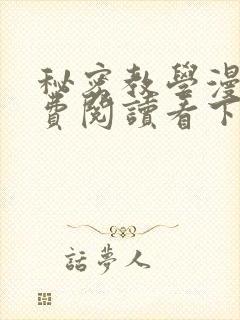 秘密教學漫
費閱讀看下
話夢人